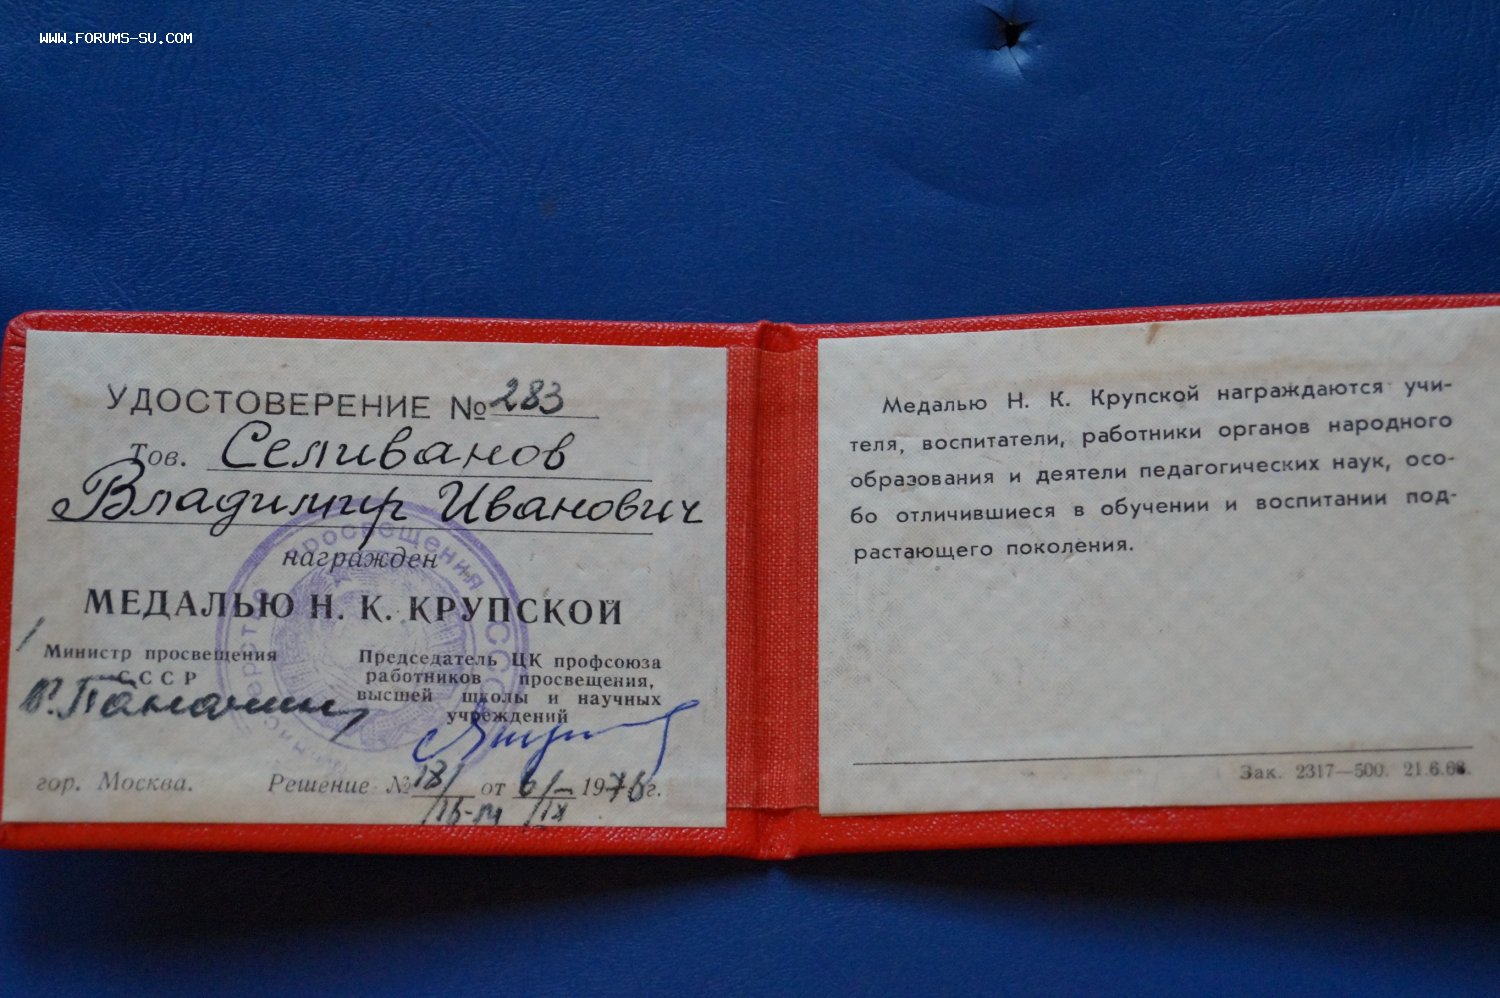 WWW.FORUMS-SU.COM
УДОСТОВЕРЕНИЕ № 283
Тов. Селиванов
Владимир Иванович
награжден
МЕДАЛЬЮ Н. К. КРУПСКОЙ
Министр просвещения
СССР
Председатель ЦК профсоюза
работников просвещения,
высшей школы и научных
учреждений
гор. Москва. Решение № 18/ от 6/IX 1976г.
просвещения СССР
Медалью Н. К. Крупской награждаются учи-
теля, воспитатели, работники органов народного
образования и деятели педагогических наук, осо-
бо отличившиеся в обучении и воспитании под-
растающего поколения.
Зак. 2317—500. 21.6.68.